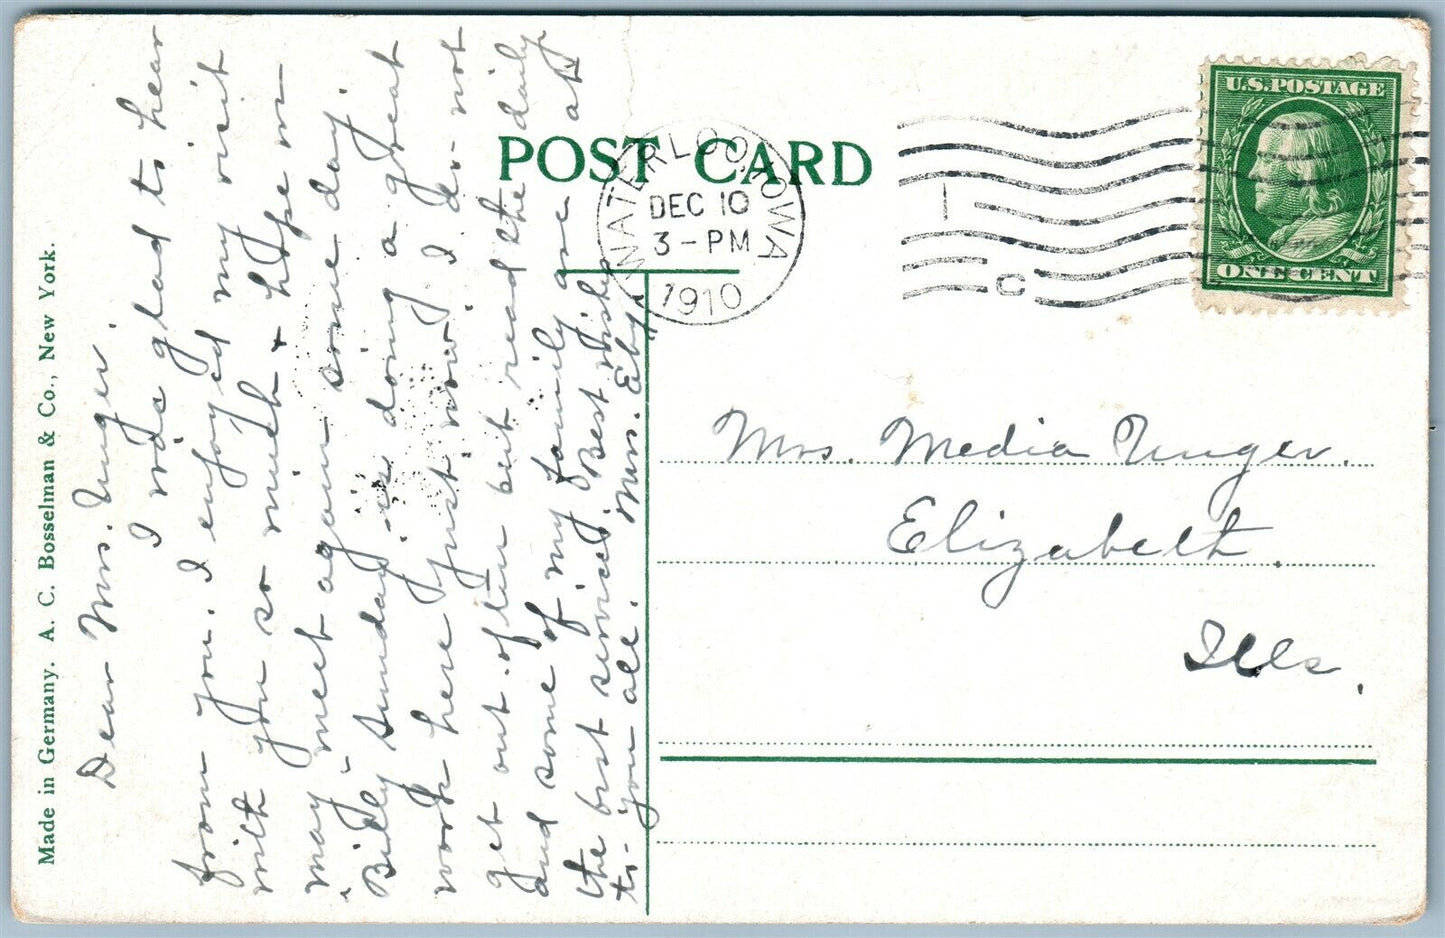 Made in Germany. A. C. Bosselman & Co., New York.
POST CARD
U.S. POSTAGE
ONE CENT
WATERLOO, IOWA
DEC 10
3 - PM
1910
1
C
Dear Mrs. Unger.
I was glad to hear
from you. I enjoyed my visit
with you so much + hope we
may meet again some day.
"Billy Sunday" is doing a great
work here just now. I do not
get out often but read the daily
and some of my family are at
the best services. Best wishes
to you all. Mrs. Eby
Mrs. Media Unger.
Elizabeth.
Ills.